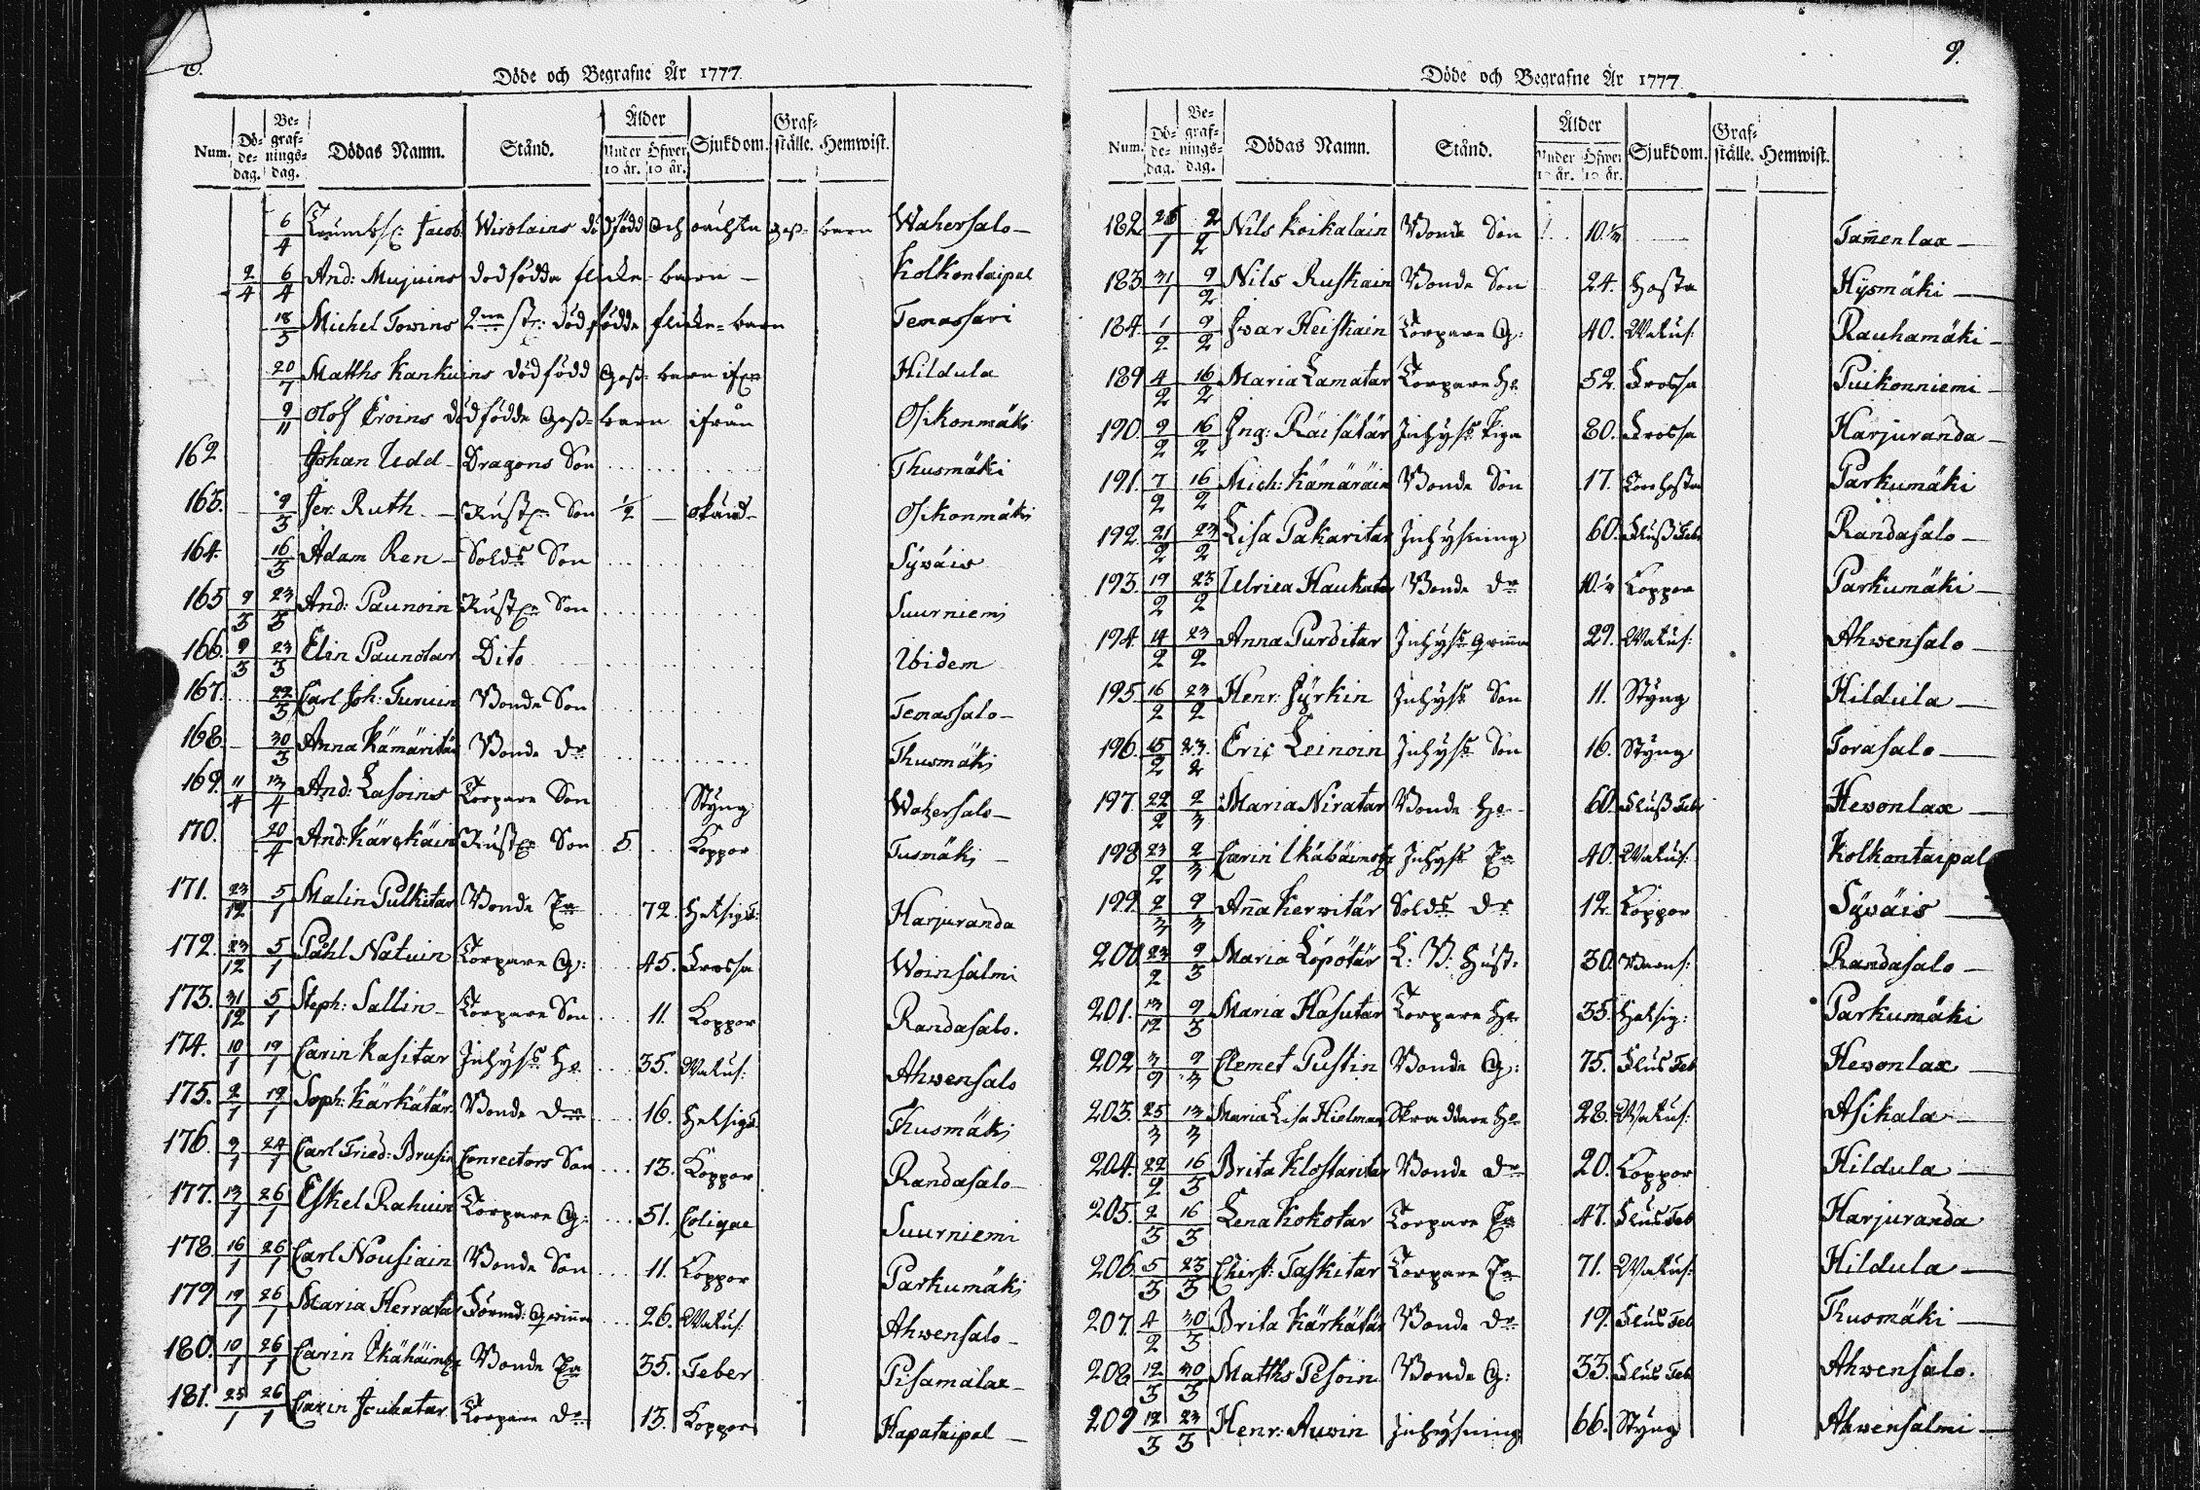 Döde och Begrafne År 1777.
Num. Döde-dag. Begrafnings-dag. Dödas Namn. Stånd. Ålder Under 10 år. Öfwer 10 år. Sjukdom. Grafställe. Hemwist.
6/4 Jacob Wirolains dödfödd och oächta Goss-barn Wahersalo
2/4 6/4 And: Mujuins dödfödda flicke-barn Kolkontaipal
18/5 Michel Towins 2ne st: dödfödde flicke-barn Temassari
20/7 Matths Kankuins dödfödd Goss-barn ifrn Hildula
9/11 Olof Eroins dödfödde Goss-barn ifrån Osikonmäki
162. Johan Udd Dragons Son Thusmäki
163. 9/3 Jer. Ruth Rustn Son 1/2 okänd Osikonmäki
164. 16/3 Adam Ren Solds Son Syväis
165 9/3 23/3 And: Paunoin Rustn Son Suurniemi
166. 9/3 23/3 Elin Paunotar Dito Ibidem
167. 22/3 Carl Joh: Turuin Bonde Son Temassalo
168. 30/3 Anna Kämäritär Bonde Dr Thusmäki
169. 11/4 13/4 And: Lasoins Torpare Son Styng Wahersalo
170. 20/4 And: Kärckäin Rustn Son 5 Koppor Tusmäki
171. 23/12 5/1 Malin Pulkitar Bonde Ea 72. Hetsigt: Harjuranda
172. 23/12 5/1 Påhl Natuin Torpare G: 45. Frossa Woinsalmi
173. 31/12 5/1 Steph: Sallin Torpare Son 11. Koppor Randasalo.
174. 10/1 19/1 Carin Kasitar Inhyss Ho 35. Watus: Ahwensalo
175. 2/1 19/1 Soph: Kärkätär Bonde Dr 16. Hetsigt Thusmäki
176. 9/1 24/1 Carl Fried: Brusin Conrectors Son 13. Koppor Randasalo
177. 13/1 26/1 Eskel Rahuin Torpare G: 51. Colique Suurniemi
178 16/1 26/1 Carl Nousiain Bonde Son 11. Koppor Parkumäki
179 19/1 26/1 Maria Herratar Qwinna 26. Watus: Ahwensalo
180. 10/1 26/1 Carin Bonde Ea 35. Feber Pisamalax
181. 25/1 26/1 Carin Torpare Dr 13. Koppor Hapataipal
9.
Döde och Begrafne År 1777.
Num. Döde-dag. Begrafnings-dag. Dödas Namn. Stånd. Ålder Under 10 år. Öfwer 10 år. Sjukdom. Grafställe. Hemwist.
182 26/1 2/2 Nils Koikalain Bonde Son Tam̄enlax
183 31/1 9/2 Nils Ruskain Bonde Son 24. Hosta Hysmäki
184. 1/2 9/2 Iwar Heiskain Torpare G: 40. Watus: Rauhamäki
189 4/2 16/2 Maria Lamatar Torpare Ho 52. Frossa Puikonniemi
190. 9/2 16/2 Ing: Räisätär Inhyss Piga 80. Frossa Harjuranda
191. 7/2 16/2 Mich: Kämäräin Bonde Son 17. Torrhosta Parkumäki
192. 21/2 23/2 Lisa Pakaritar Inhysning 60. Fluss Feb Randasalo
193. 19/2 23/2 Ulrica Haukatar Bonde Dr Koppor Parkumäki
194. 14/2 23/2 Anna Purditar Inhyss Qwinna 29. Watus: Ahwensalo
195. 16/2 23/2 Henr. Hyrkin Inhyss Son 11. Styng Hildula
196. 15/2 23/2 Eric Leinoin Inhyss Son 16. Styng Torasalo
197 22/2 2/3 Maria Niratar Bonde Ho 60. Fluss Feb Hewonlax
198 23/2 2/3 Carin Inhyss Ea 40. Watus: Kolkontaipal
199. 2/3 9/3 An̄a Kerwitär Solds Dr 12. Koppor Syväis
200 23/2 9/3 Maria Löpötär L: B: Hust: 30. Randasalo
201. 13/12 9/3 Maria Hasutar Torpare Ho 35. Hetsig: Parkumäki
202 3/2 9/3 Clemet Pustin Bonde G: 75. Flus Feb Hewonlax
203. 25/3 13/3 Maria Lisa Hielman Skraddare Ho 28. Watus: Asikala
204. 22/2 16/3 Brita Klossaritar Bonde Dr 20. Koppor Hildula
205. 2/3 16/3 Lena Kokotar Torpare Ea 47. Flus Feb Harjuranda
206. 5/3 23/3 Chirst: Taskitar Torpare Ea 71. Watus: Hildula
207. 4/2 30/3 Brita Kärkätär Bonde Dr 19. Flus Feb Thusmäki
208 12/3 30/3 Matths Pesoin Bonde G: 33. Flus Feb Ahwensalo.
209 12/3 23/3 Henr: Auwin Inhysning 66. Styng Ahwensalmi